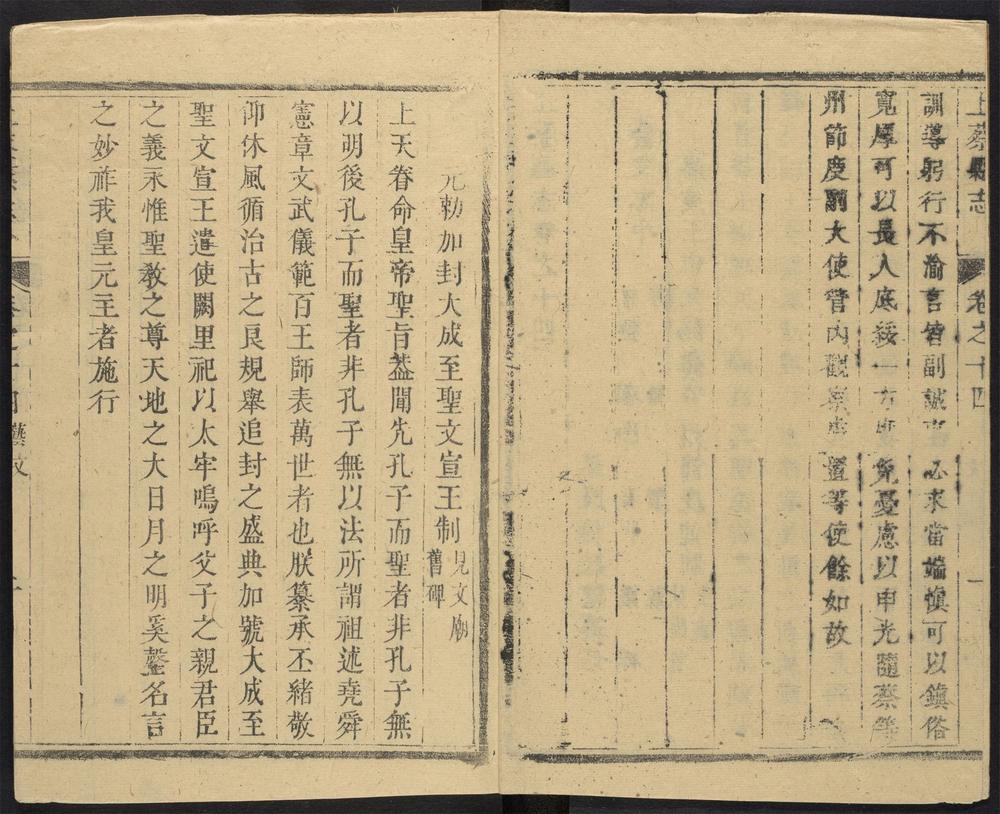 上蔡縣志
卷之十四
訓導躬行不渝言皆副誠 必求當端愼可以鎭俗
寬厚可以長人底綏一方 免憂慮以申光隨蔡等
州節度副大使管內觀察處置等使餘如故
元勅加封大成至聖文宣王制 見文廟舊碑
上天眷命皇帝聖旨葢聞先孔子而聖者非孔子無
以明後孔子而聖者非孔子無以法所謂祖述堯舜
憲章文武儀範百王師表萬世者也朕纂承丕緒敬
仰休風循治古之良規舉追封之盛典加號大成至
聖文宣王遣使闕里祀以太牢嗚呼父子之親君臣
之義永惟聖教之尊天地之大日月之明奚罄名言
之妙祚我皇元主者施行
藝文